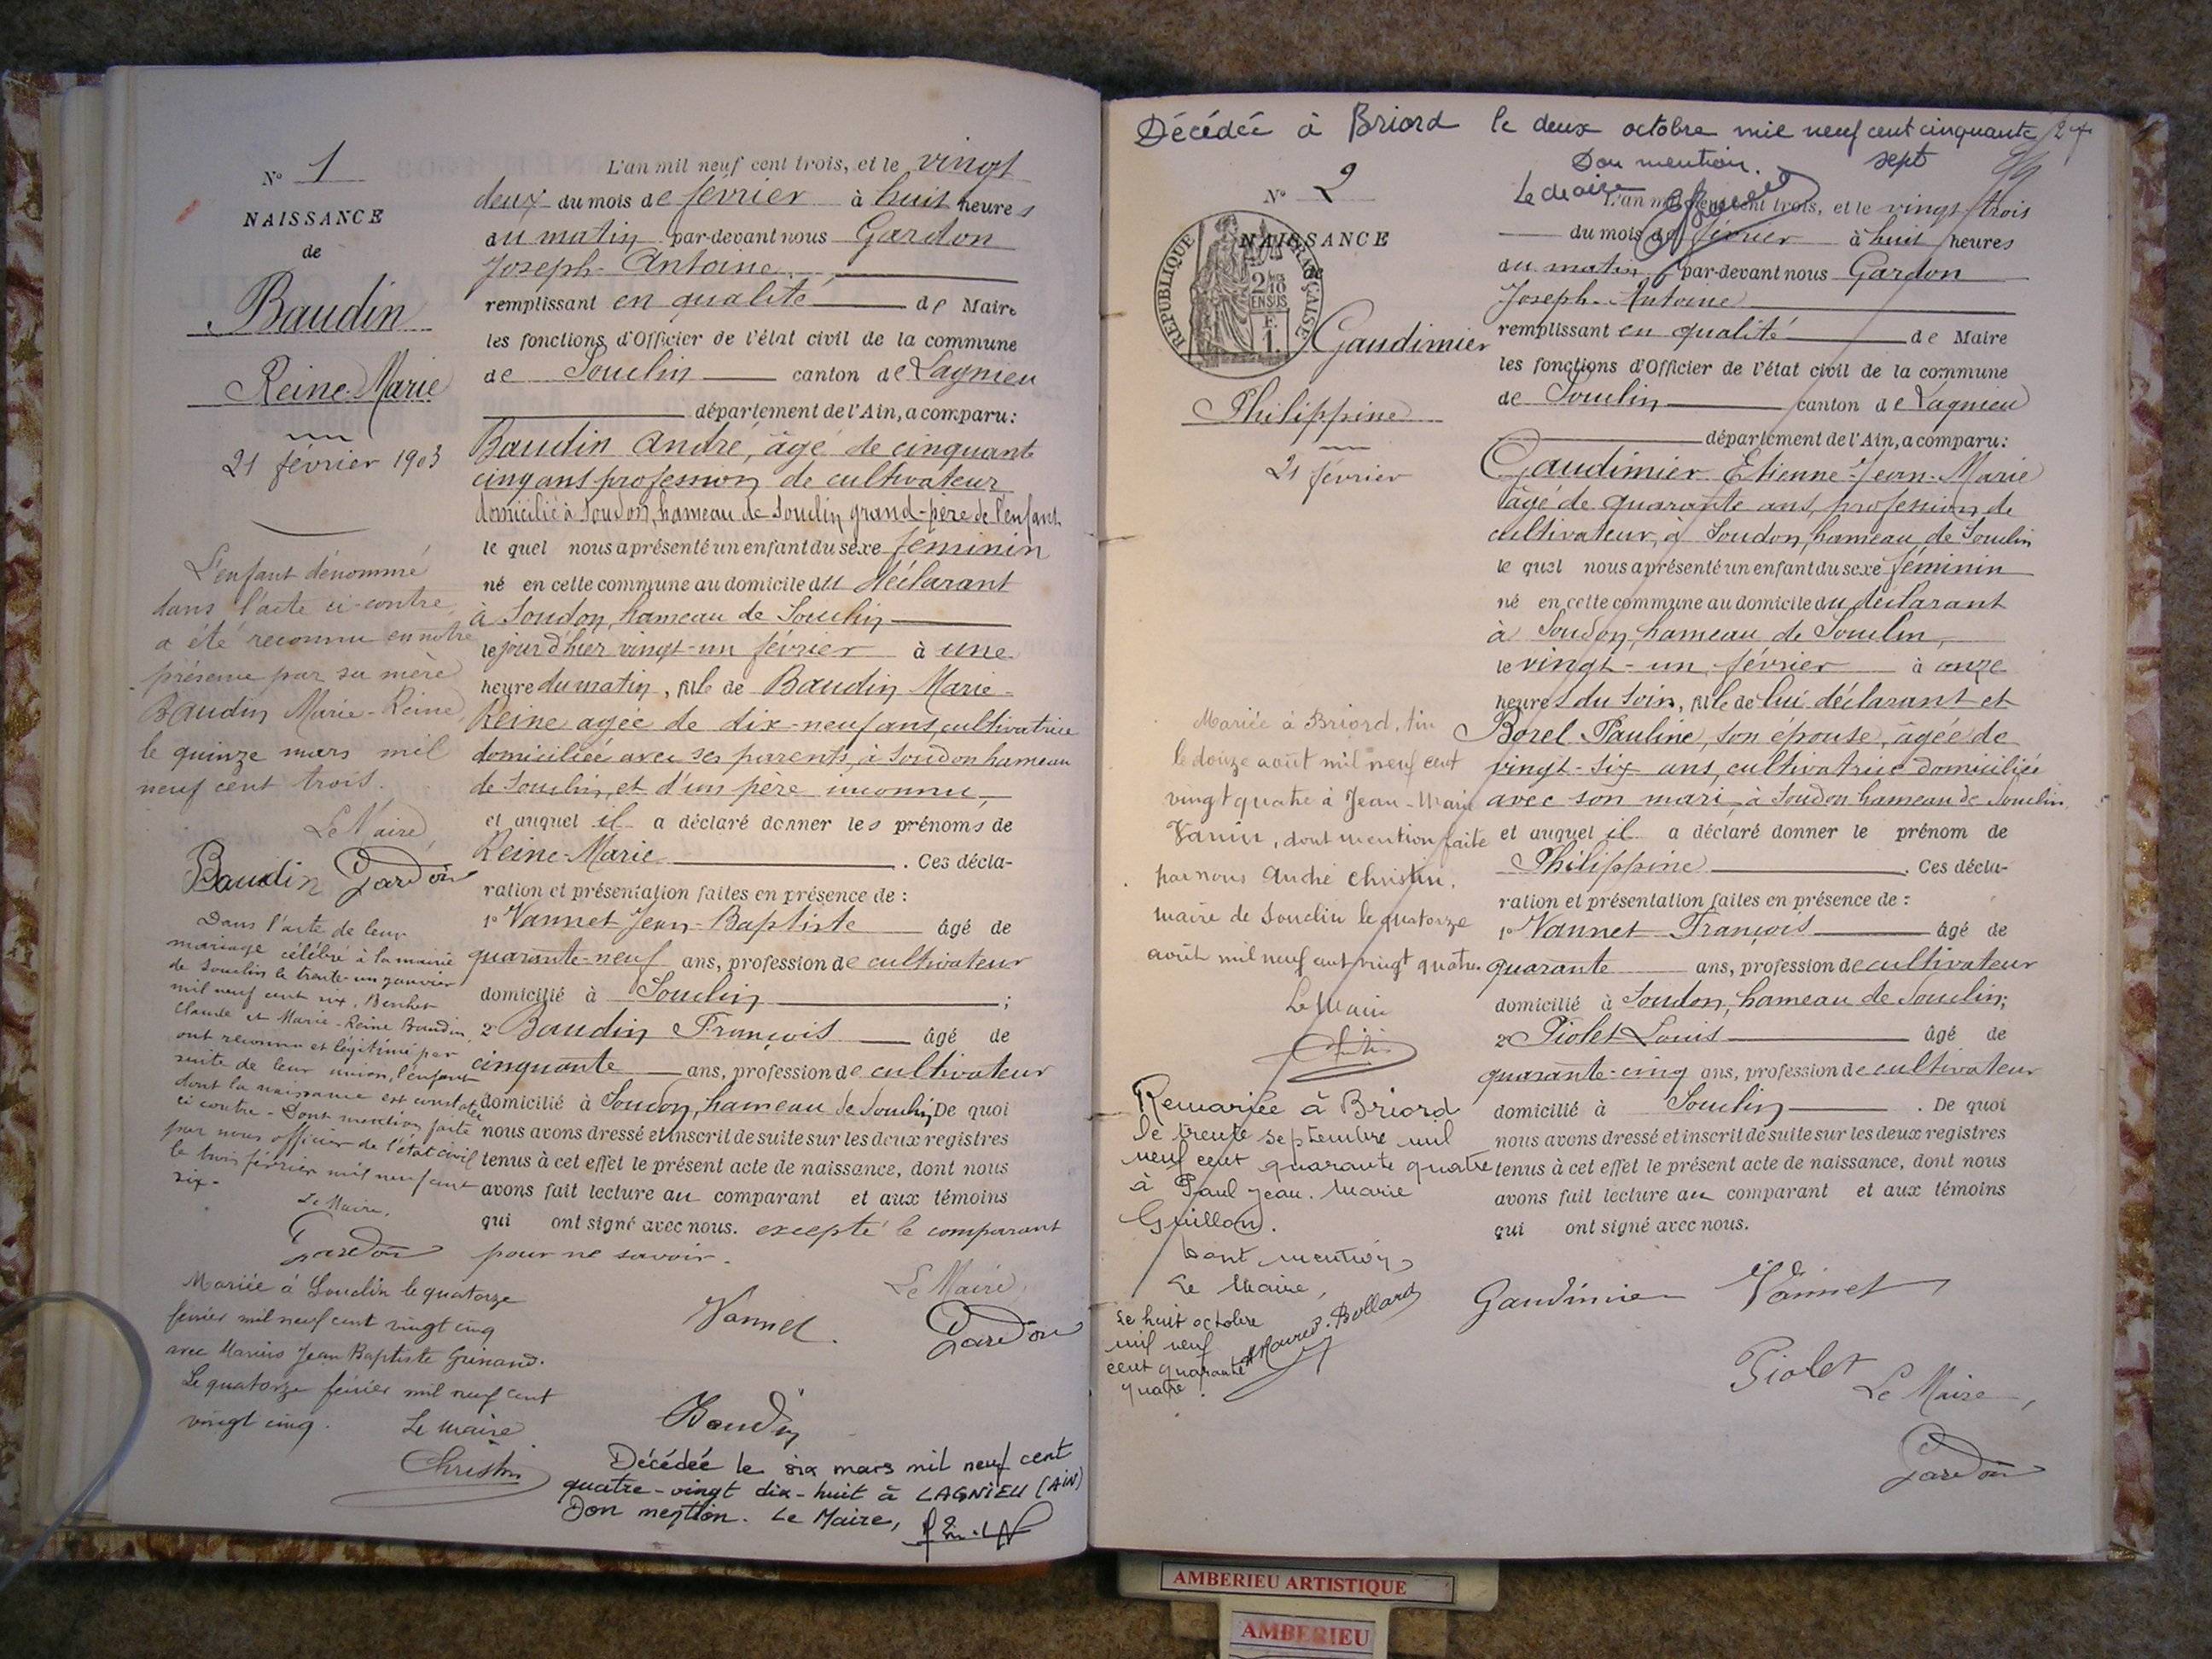 N° 1
NAISSANCE
de
Baudin
Reine-Marie
21 février 1903
L'enfant dénommé
dans l'acte ci-contre
a été reconnu en notre
présence par sa mère
Baudin Marie-Reine
le quinze mars mil
neuf cent trois.
Le Maire
Baudin Gardon
Dans l'acte de leur
mariage célébré à la mairie
de Souclin le trente-un janvier
mil neuf cent six,
Claude et Marie-Reine Baudin
ont reconnu et légitimé par
suite de leur union, l'enfant
dont la naissance est constatée
ci contre - Dont mention faite
par nous officier de l'état civil
le trois février mil neuf cent
six.
Le Maire,
Gardon
Mariée à Souclin le quatorze
février mil neuf cent vingt cinq
avec Marius Jean Baptiste Grinand.
Le quatorze février mil neuf cent
vingt cinq.
Le maire
Christin
L'an mil neuf cent trois, et le vingt
deux du mois de février à huit heures
du matin par-devant nous Gardon
Joseph-Antoine
remplissant en qualité de Maire
les fonctions d'Officier de l'état civil de la commune
de Souclin canton de Lagnieu
département de l'Ain, a comparu:
Baudin André, âgé de cinquante
cinq ans profession de cultivateur
domicilié à Soudon, hameau de Souclin grand-père de l'enfant
lequel nous a présenté un enfant du sexe féminin
né en cette commune au domicile du déclarant
à Soudon, hameau de Souclin
le jour d'hier vingt-un février à une
heure du matin, fille de Baudin Marie-
Reine agée de dix-neuf ans, cultivatrice
domiciliée avec ses parents, à Soudon hameau
de Souclin, et d'un père inconnu,
et auquel il a déclaré donner les prénoms de
Reine-Marie. Ces décla-
ration et présentation faites en présence de :
1° Vannet Jean-Baptiste âgé de
quarante-neuf ans, profession de cultivateur
domicilié à Souclin ;
2° Baudin François âgé de
cinquante ans, profession de cultivateur
domicilié à Soudon, hameau de Souclin. De quoi
nous avons dressé et inscrit de suite sur les deux registres
tenus à cet effet le présent acte de naissance, dont nous
avons fait lecture au comparant et aux témoins
qui ont signé avec nous. excepté le comparant
pour ne savoir.
Le Maire
Vannet. Gardon
Baudin
Décédée le six mars mil neuf cent
quatre-vingt dix-huit à LAGNIEU (AIN)
Don mention. Le Maire,
Décédée à Briord le deux octobre mil neuf cent cinquante
sept
Don mention.
Le Maire
N° 2
REPUBLIQUE FRANÇAISE
NAISSANCE
de
2/10
EN SUS
F.
1
Gaudimier
Philippine
21 février
Mariée à Briord, Ain
le douze août mil neuf cent
vingt quatre à Jean-Marie
dont mention faite
par nous André Christin,
maire de Souclin le quatorze
août mil neuf cent vingt quatre.
Le Maire
Remariée à Briord
le trente septembre mil
neuf cent quarante quatre
à Paul Jean-Marie
Guillon.
Dont mention
Le Maire,
Le huit octobre
mil neuf
cent quarante
quatre.
L'an mil neuf cent trois, et le vingt trois
du mois de février à huit heures
du matin par-devant nous Gardon
Joseph-Antoine
remplissant en qualité de Maire
les fonctions d'Officier de l'état civil de la commune
de Souclin canton de Lagnieu
département de l'Ain, a comparu:
Gaudimier Etienne-Jean-Marie
âgé de quarante ans, profession de
cultivateur, à Soudon, hameau de Souclin
lequel nous a présenté un enfant du sexe féminin
né en cette commune au domicile du déclarant
à Soudon, hameau de Souclin,
le vingt-un février à onze
heures du soir, fille de lui déclarant et
Borel Pauline, son épouse, âgée de
vingt-six ans, cultivatrice domiciliée
avec son mari à Soudon hameau de Souclin
et auquel il a déclaré donner le prénom de
Philippine. Ces décla-
ration et présentation faites en présence de :
1° Vannet François âgé de
quarante ans, profession de cultivateur
domicilié à Soudon, hameau de Souclin;
2° Piolet Louis âgé de
quarante-cinq ans, profession de cultivateur
domicilié à Souclin. De quoi
nous avons dressé et inscrit de suite sur les deux registres
tenus à cet effet le présent acte de naissance, dont nous
avons fait lecture au comparant et aux témoins
qui ont signé avec nous.
Gaudimier Vannet
Piolet
Le Maire,
Gardon
AMBERIEU ARTISTIQUE
AMBERIEU